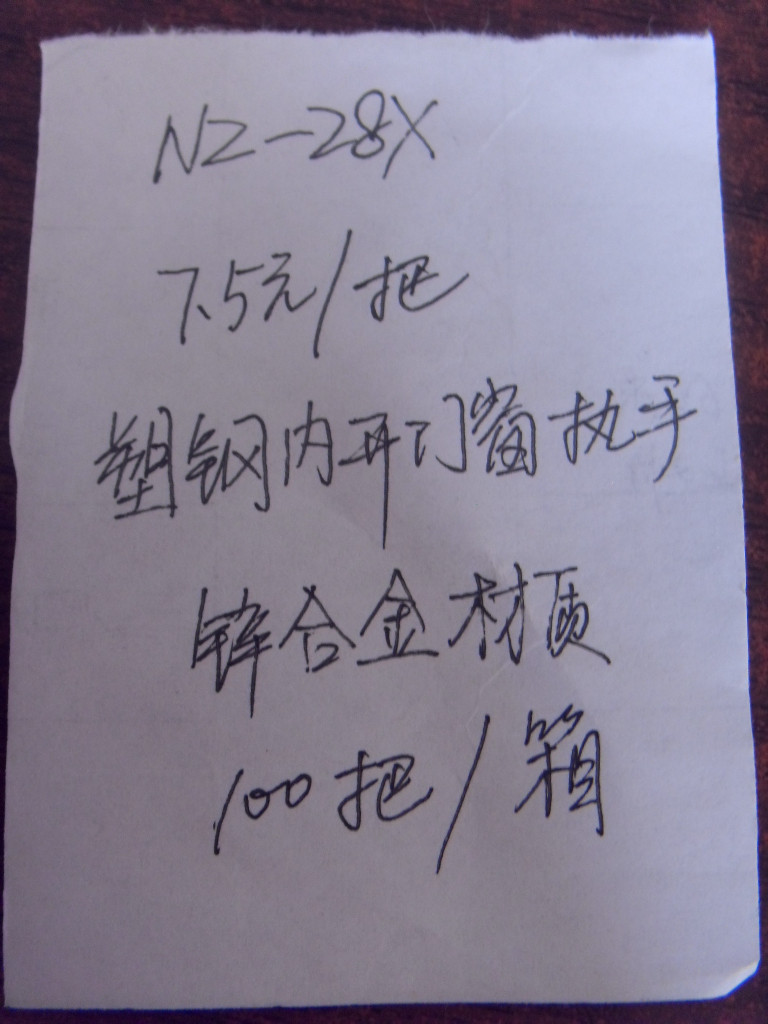 NZ-28X
7.5元/把
塑钢内开门窗执手
锌合金材质
100把/箱